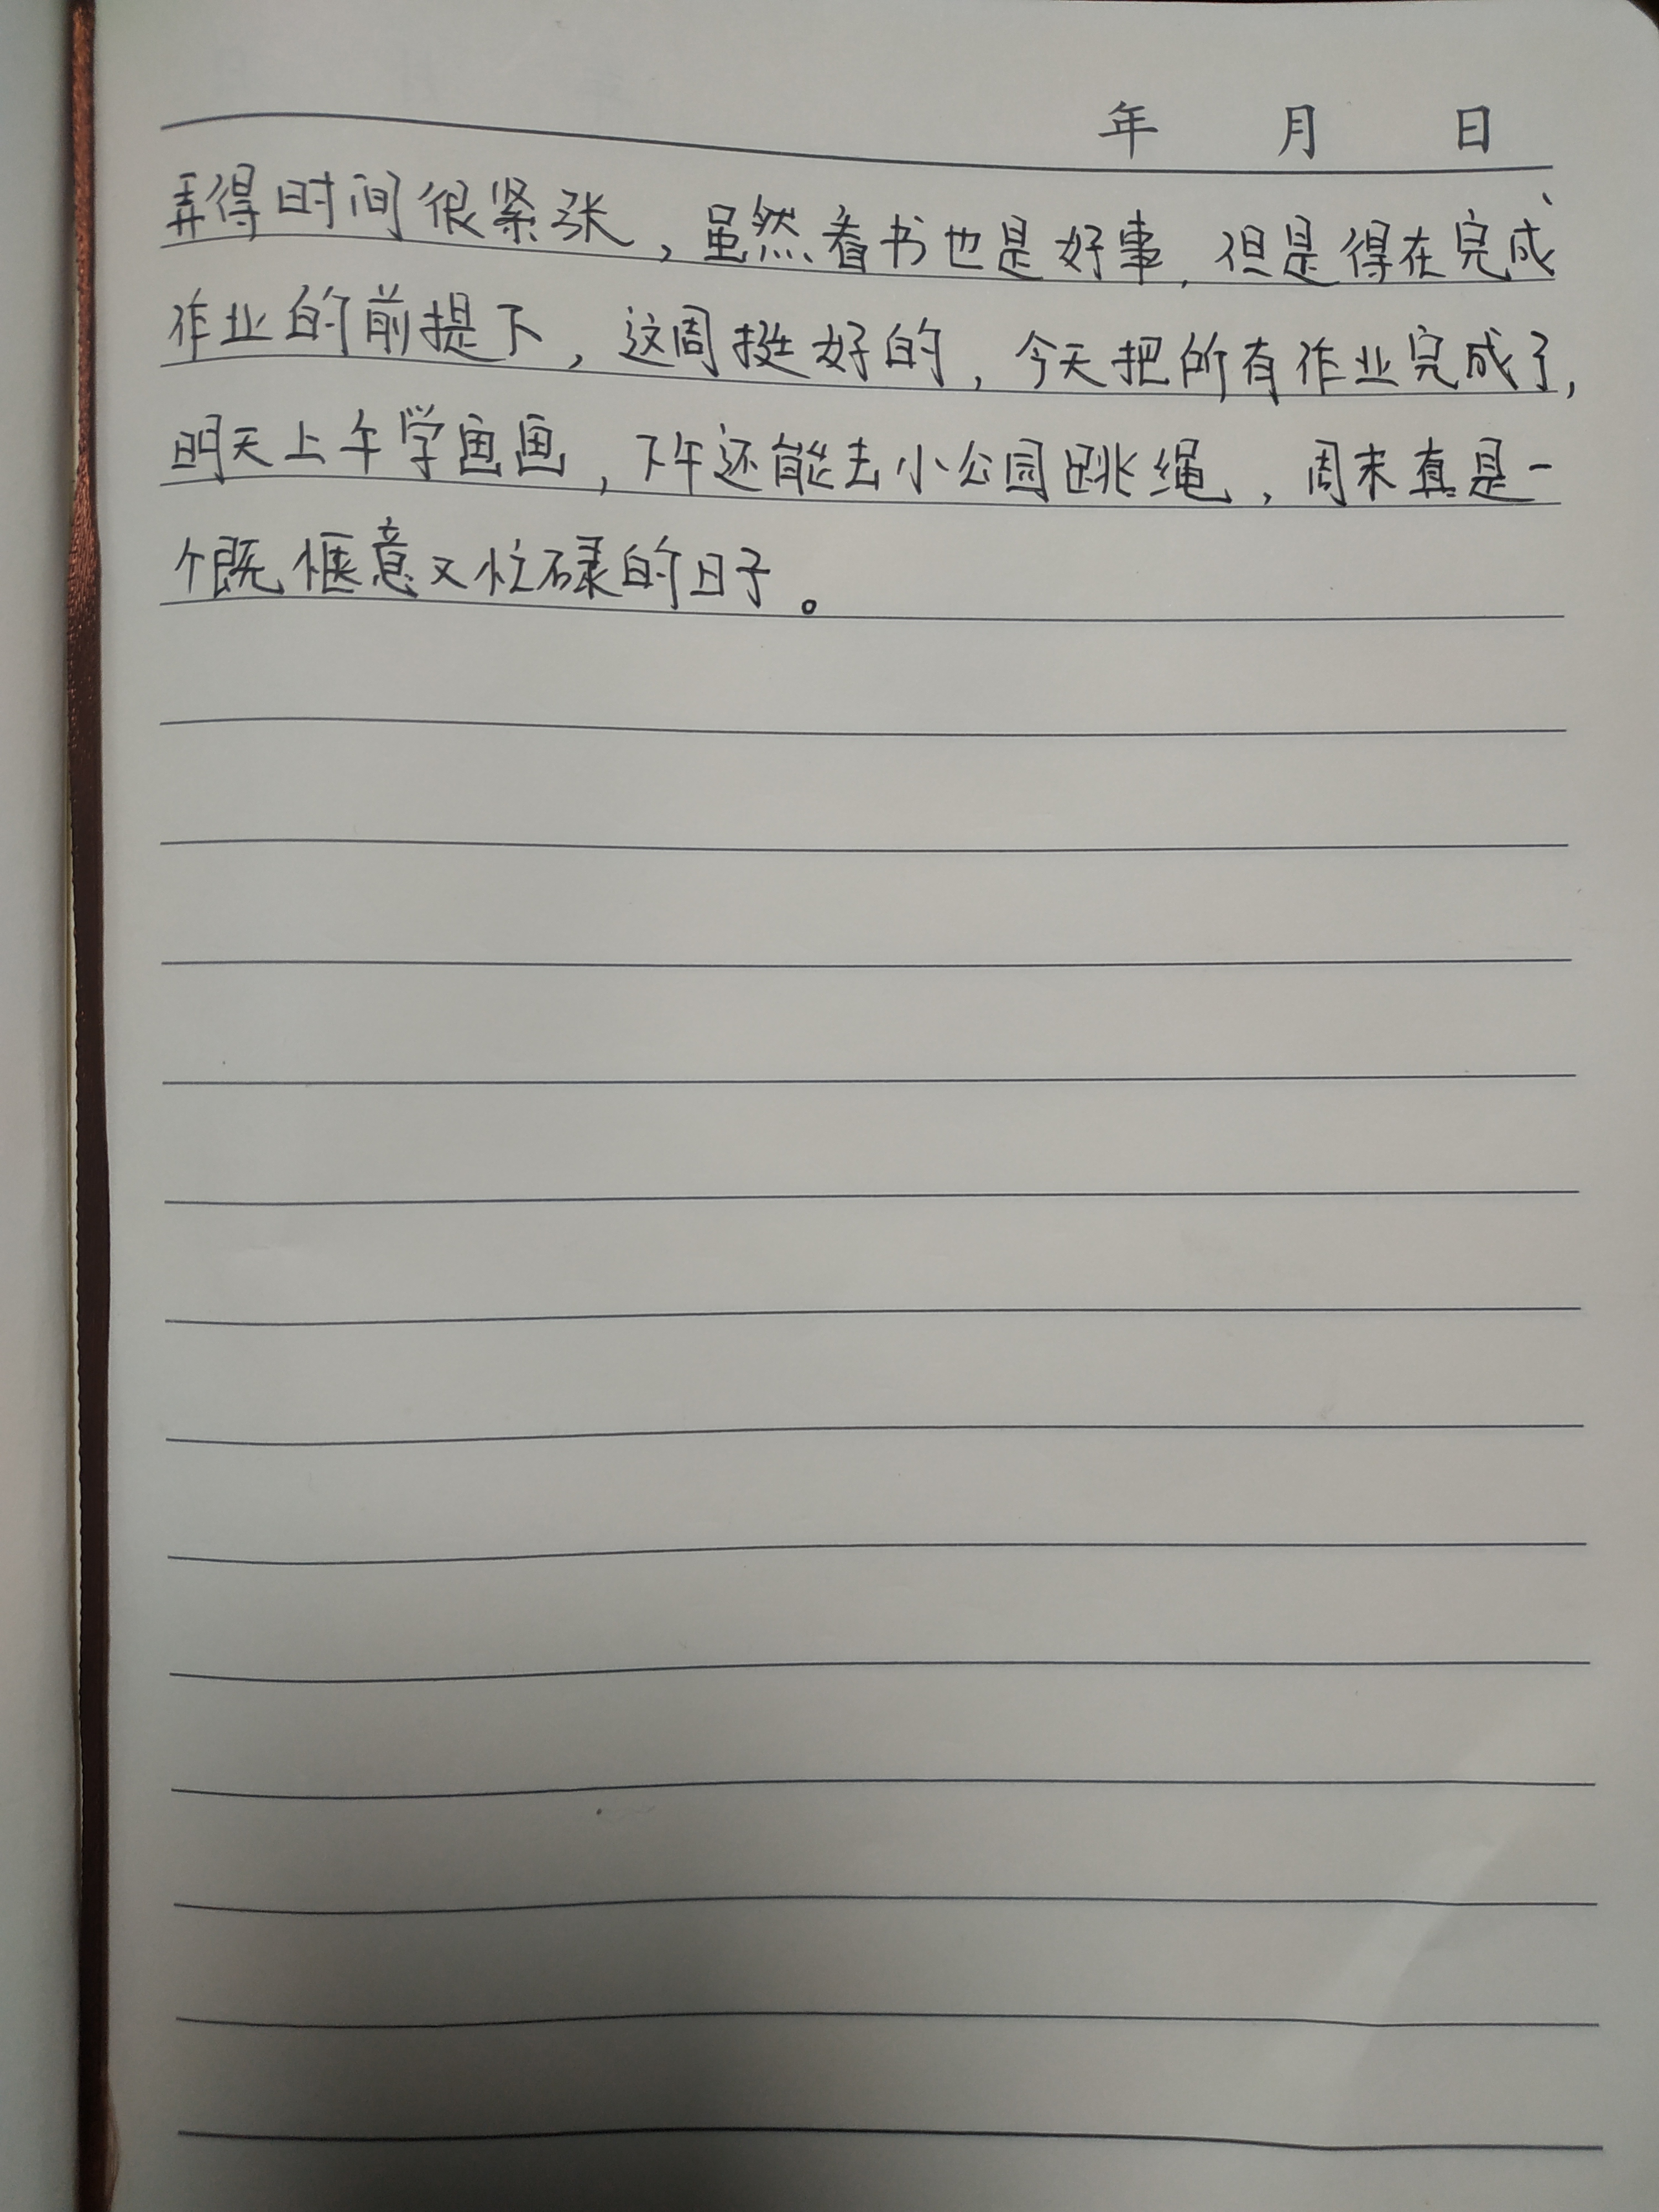 年 月 日
弄得时间很紧张，虽然看书也是好事，但是得在完成
作业的前提下，这周挺好的，今天把所有作业完成了，
明天上午学画画，下午还能去小公园跳绳，周末真是一
个既惬意又忙碌的日子。